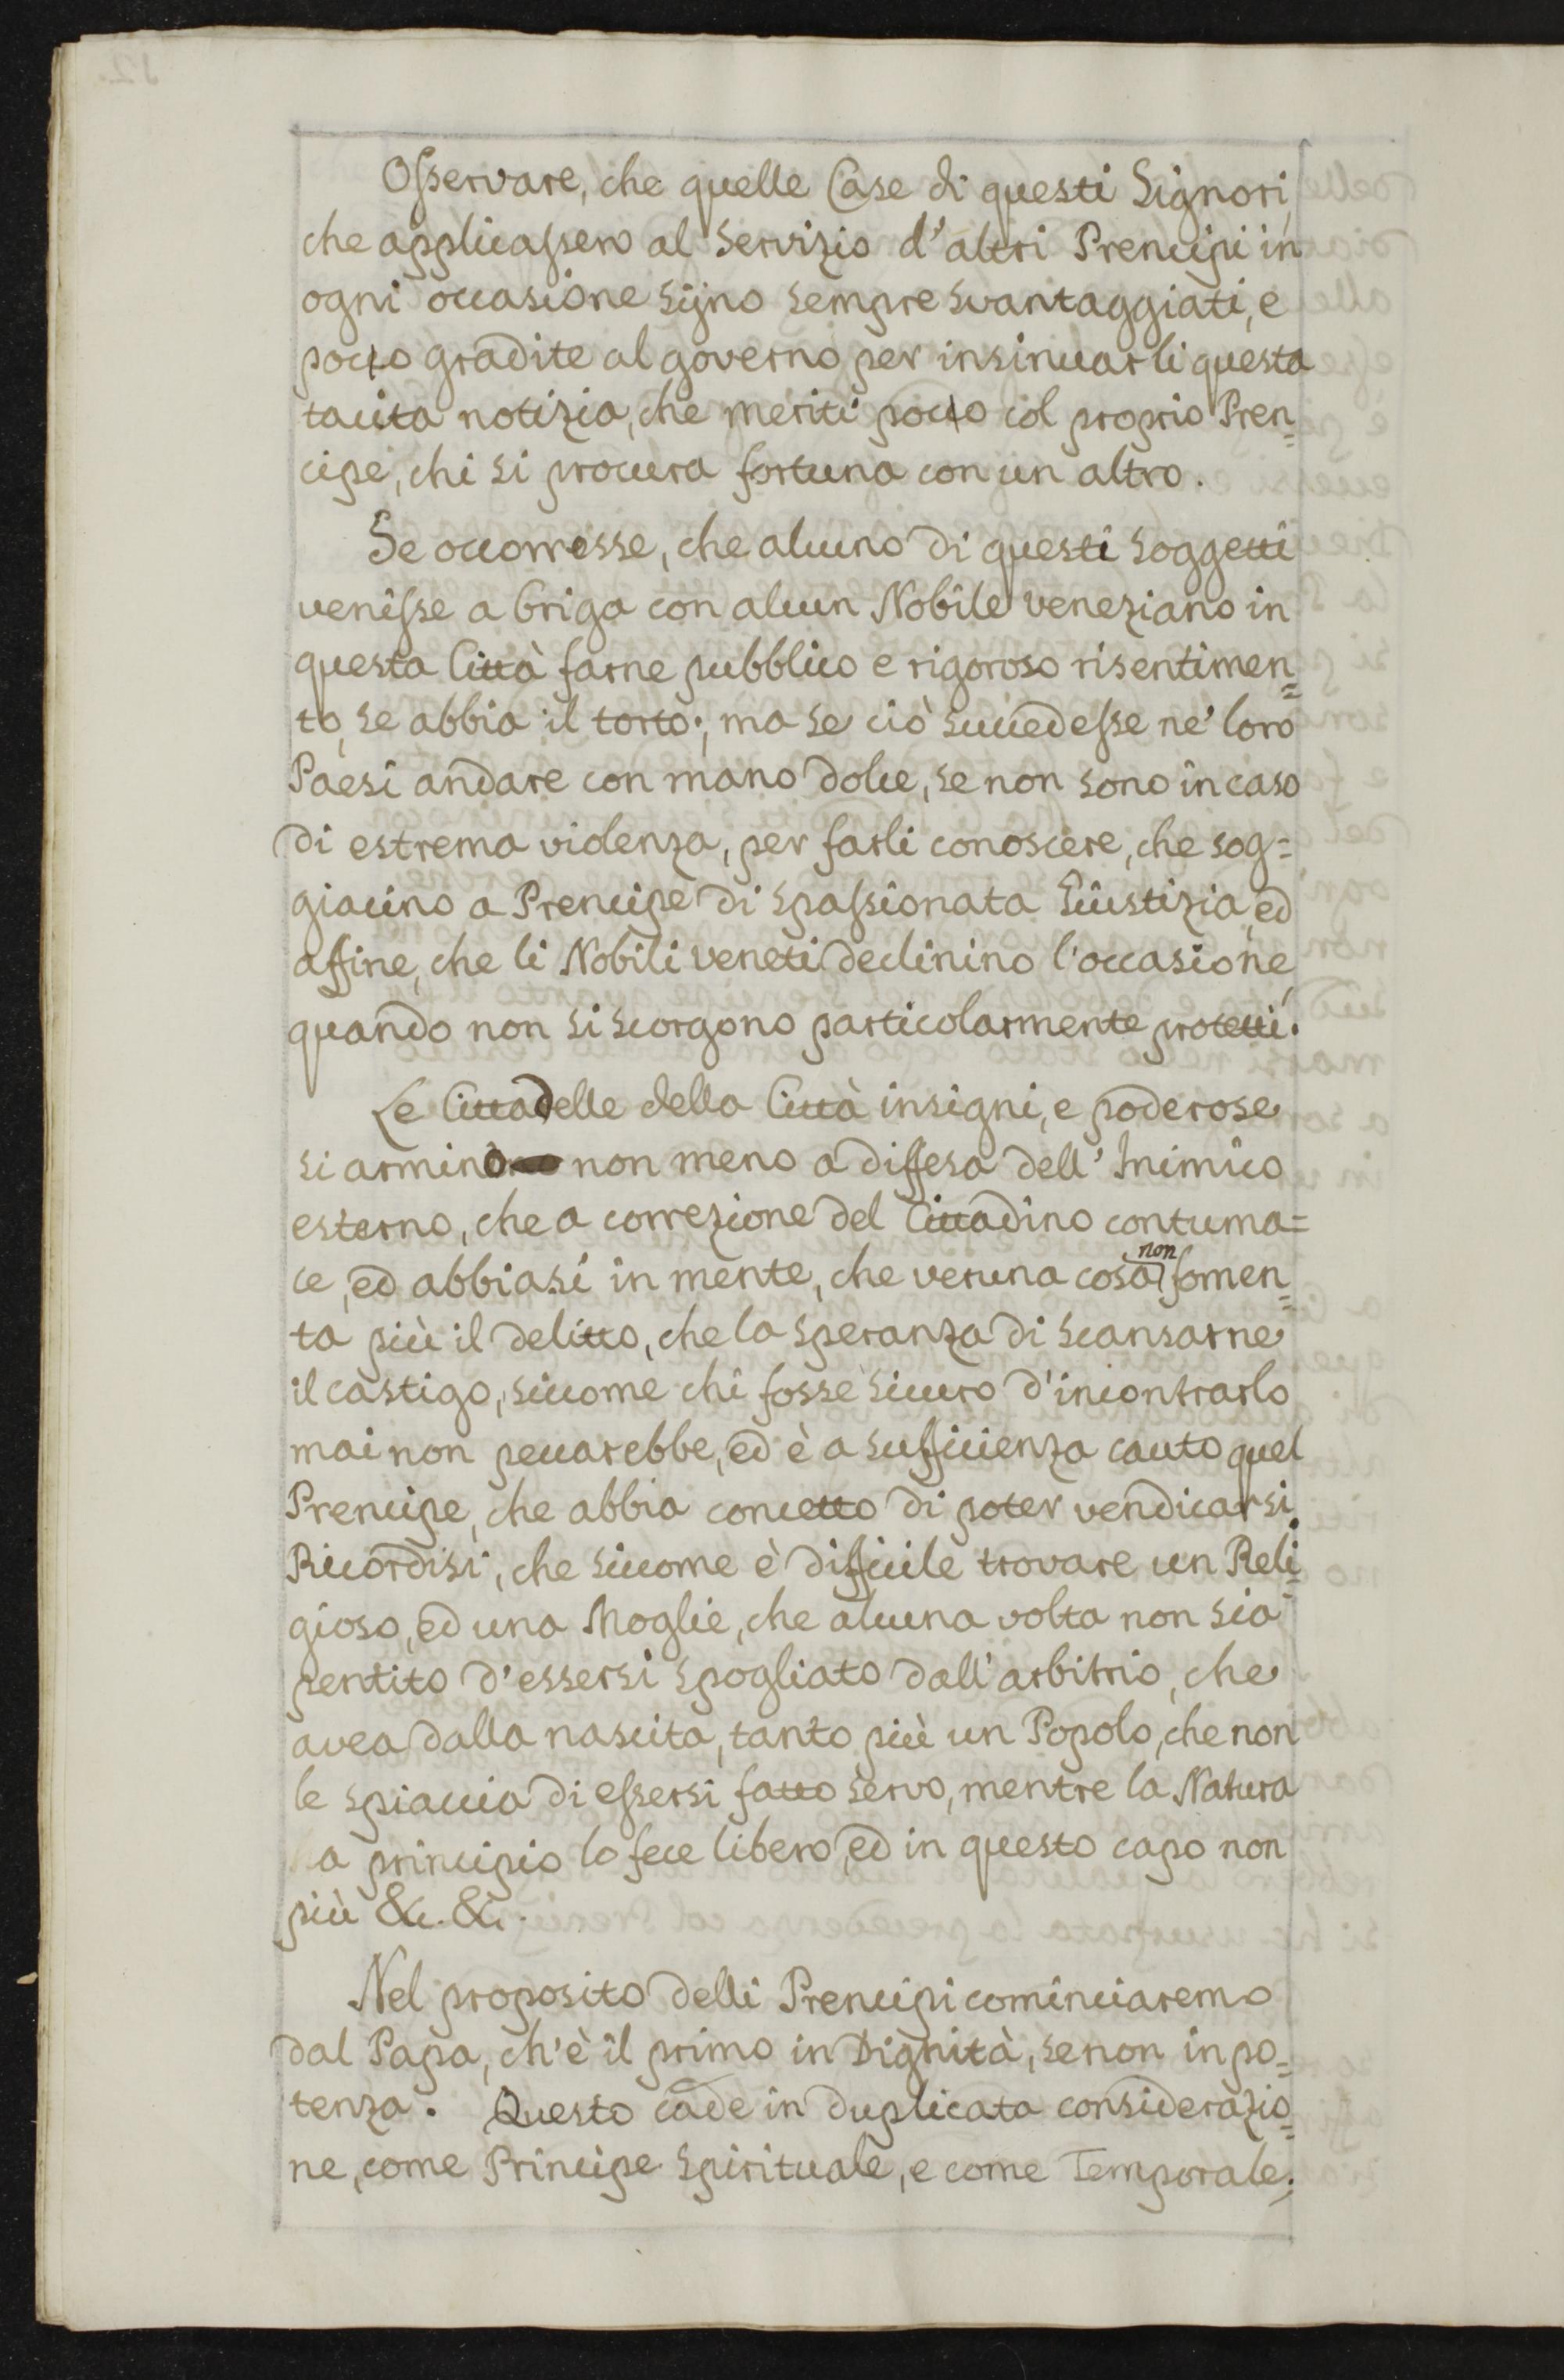 Osservare, che quelle Case di questi Signori,
che applicassero al Servizio d'altri Prencipi in
ogni occasione sijno sempre svantaggiati, e
pocco gradite al governo per insinuarli questa
tacita notizia, che meriti pocco col proprio Pren=
cipe, chi si procura fortuna con un altro.
Se occorresse, che alcuno di questi soggetti
venisse a briga con alcun Nobile veneziano in
questa Città farne pubblico e rigoroso risentimen=
to, se abbia il torto; ma se ciò succedesse ne' loro
Paesi andare con mano dolce, se non sono in caso
di estrema violenza, per farli conoscere, che sog=
giacino a Prencipe di spassionata Giustizia, ed
affine, che li Nobili veneti declinino l'occasione,
quando non si scorgono particolarmente protetti.
Le Cittadelle della Città insigni, e poderose
si armino non meno a diffesa dell'Inimico
esterno, che a correzione del Cittadino contuma=
ce, ed abbiasi in mente, che veruna cosa non fomen=
ta più il delitto, che la speranza di scansarne
il castigo, siccome chi fosse sicuro d'incontrarlo
mai non peccarebbe, ed è a sufficienza cauto quel
Prencipe, che abbia concetto di poter vendicarsi.
Ricordisi, che siccome è difficile trovare un Reli=
gioso, ed una Moglie, che alcuna volta non sia
pentito d'essersi spogliato dall'arbitrio, che
avea dalla nascita, tanto più un Popolo, che non
le spiaccia di essersi fatto servo, mentre la Natura
a principio lo fece libero, ed in questo capo non
più &c. &c.
Nel proposito delli Prencipi cominciaremo
dal Papa, ch'è il primo in Dignità, se non in po=
tenza. Questo cade in duplicata considerazio=
ne, come Principe Spirituale, e come Temporale.